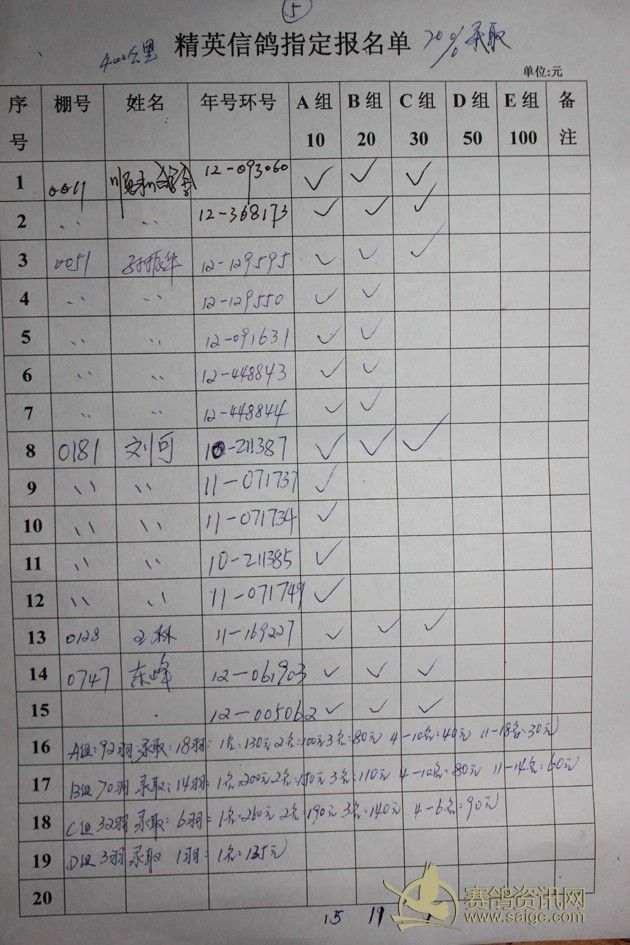 5
400公里 精英信鸽指定报名单 20% 录取
单位:元
序号 棚号 姓名 年号环号 A组 10 B组 20 C组 30 D组 50 E组 100 备注
1 0011 12-093060 ✓ ✓ ✓
2 〃 〃 12-368173 ✓ ✓ ✓
3 0051 12-129595 ✓ ✓ ✓
4 〃 〃 12-129550 ✓ ✓
5 〃 〃 12-091631 ✓ ✓
6 〃 〃 12-448843 ✓ ✓
7 〃 〃 12-448844 ✓ ✓
8 0181 刘可 10-211387 ✓ ✓ ✓
9 〃 〃 11-071737 ✓
10 〃 〃 11-071734 ✓
11 〃 〃 10-211385 ✓
12 〃 〃 11-071749 ✓
13 0128 王林 11-169227 ✓ ✓ ✓
14 0747 东峰 12-061903 ✓ ✓ ✓
15 12-005062 ✓ ✓ ✓
16 A组:92羽 录取:18羽: 1名:130元 2名:100元 3名:80元 4-10名:40元 11-18名:30元)
17 B组 70羽 录取:14羽: 1名:200元 2名:150元 3名:110元 4-10名:80元 11-14名:60元)
18 C组 32羽 录取: 6羽: 1名:260元 2名:190元 3名:140元 4-6名:90元)
19 D组 3羽 录取 1羽: 1名:135元)
20
15
赛鸽资讯网
www.saige.com